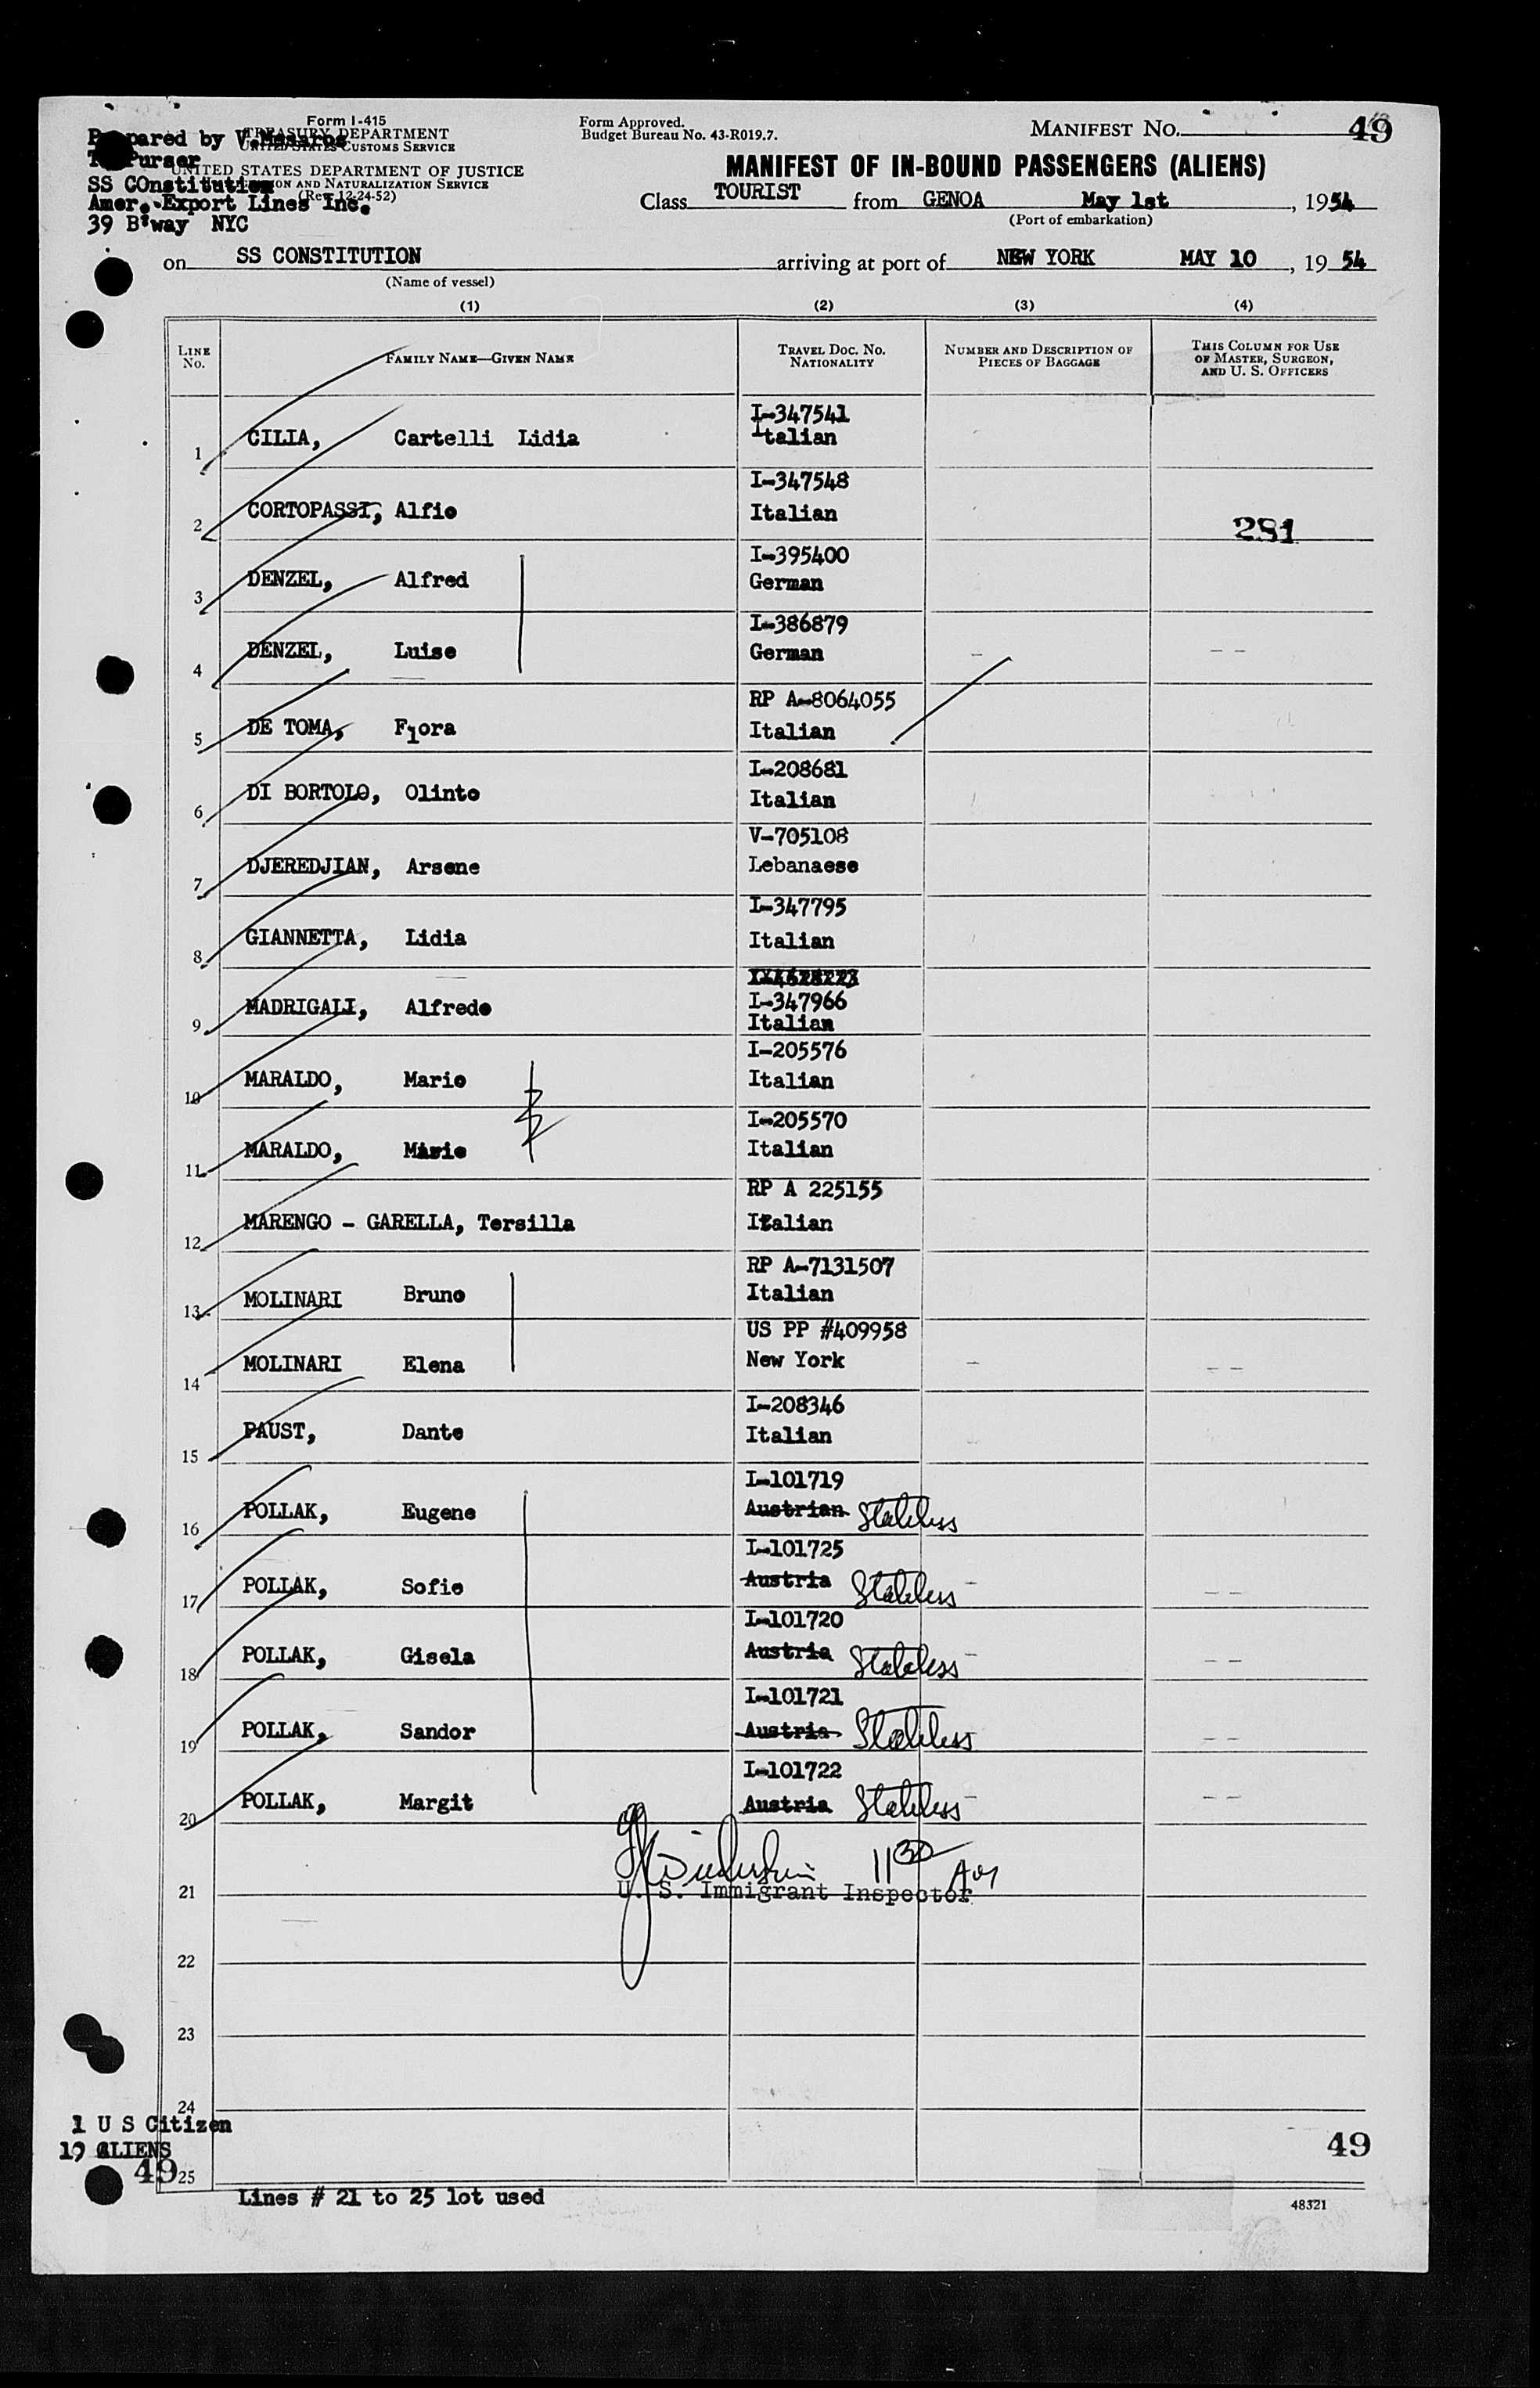 Form I-415
TREASURY DEPARTMENT
UNITED STATES CUSTOMS SERVICE
UNITED STATES DEPARTMENT OF JUSTICE
ION AND NATURALIZATION SERVICE
(Rev. 12-24-52)
Prepared by V.Mesaros
Purser
SS COnstitution
Amer. Export Lines Inc.
39 B'way NYC
Form Approved.
Budget Bureau No. 43-R019.7.
MANIFEST NO. 49
MANIFEST OF IN-BOUND PASSENGERS (ALIENS)
Class TOURIST from GENOA May 1st, 1954
(Port of embarkation)
on SS CONSTITUTION arriving at port of NEW YORK MAY 10, 19 54
(Name of vessel)
(1) (2) (3) (4)
LINE NO. FAMILY NAME—GIVEN NAME TRAVEL DOC. NO. NATIONALITY NUMBER AND DESCRIPTION OF PIECES OF BAGGAGE THIS COLUMN FOR USE OF MASTER, SURGEON, AND U. S. OFFICERS
I-347541
1 CILIA, Cartelli Lidia Italian
I-347548
2 CORTOPASSI, Alfio Italian
281
I-395400
3 DENZEL, Alfred German
I-386879
4 DENZEL, Luise German
RP A-8064055
5 DE TOMA, Fiora Italian
I-208681
6 DI BORTOLO, Olinto Italian
V-705108
7 DJEREDJIAN, Arsene Lebanaese
I-347795
8 GIANNETTA, Lidia Italian
I-347966
9 MADRIGALI, Alfredo Italian
I-205576
10 MARALDO, Mario Italian
I-205570
11 MARALDO, Mario Italian
RP A 225155
12 MARENGO - GARELLA, Tersilla Italian
RP A-7131507
13 MOLINARI Bruno Italian
US PP #409958
14 MOLINARI Elena New York
I-208346
15 PAUST, Dante Italian
I-101719
16 POLLAK, Eugene Austrian Stateless
I-101725
17 POLLAK, Sofie Austria Stateless
I-101720
18 POLLAK, Gisela Austria Stateless
I-101721
19 POLLAK, Sandor Austria Stateless
I-101722
20 POLLAK, Margit Austria Stateless
11 30 AM
U. S. Immigrant Inspector
21
22
23
24
1 U S Citizen
19 ALIENS
49
49
25
Lines # 21 to 25 lot used
48321